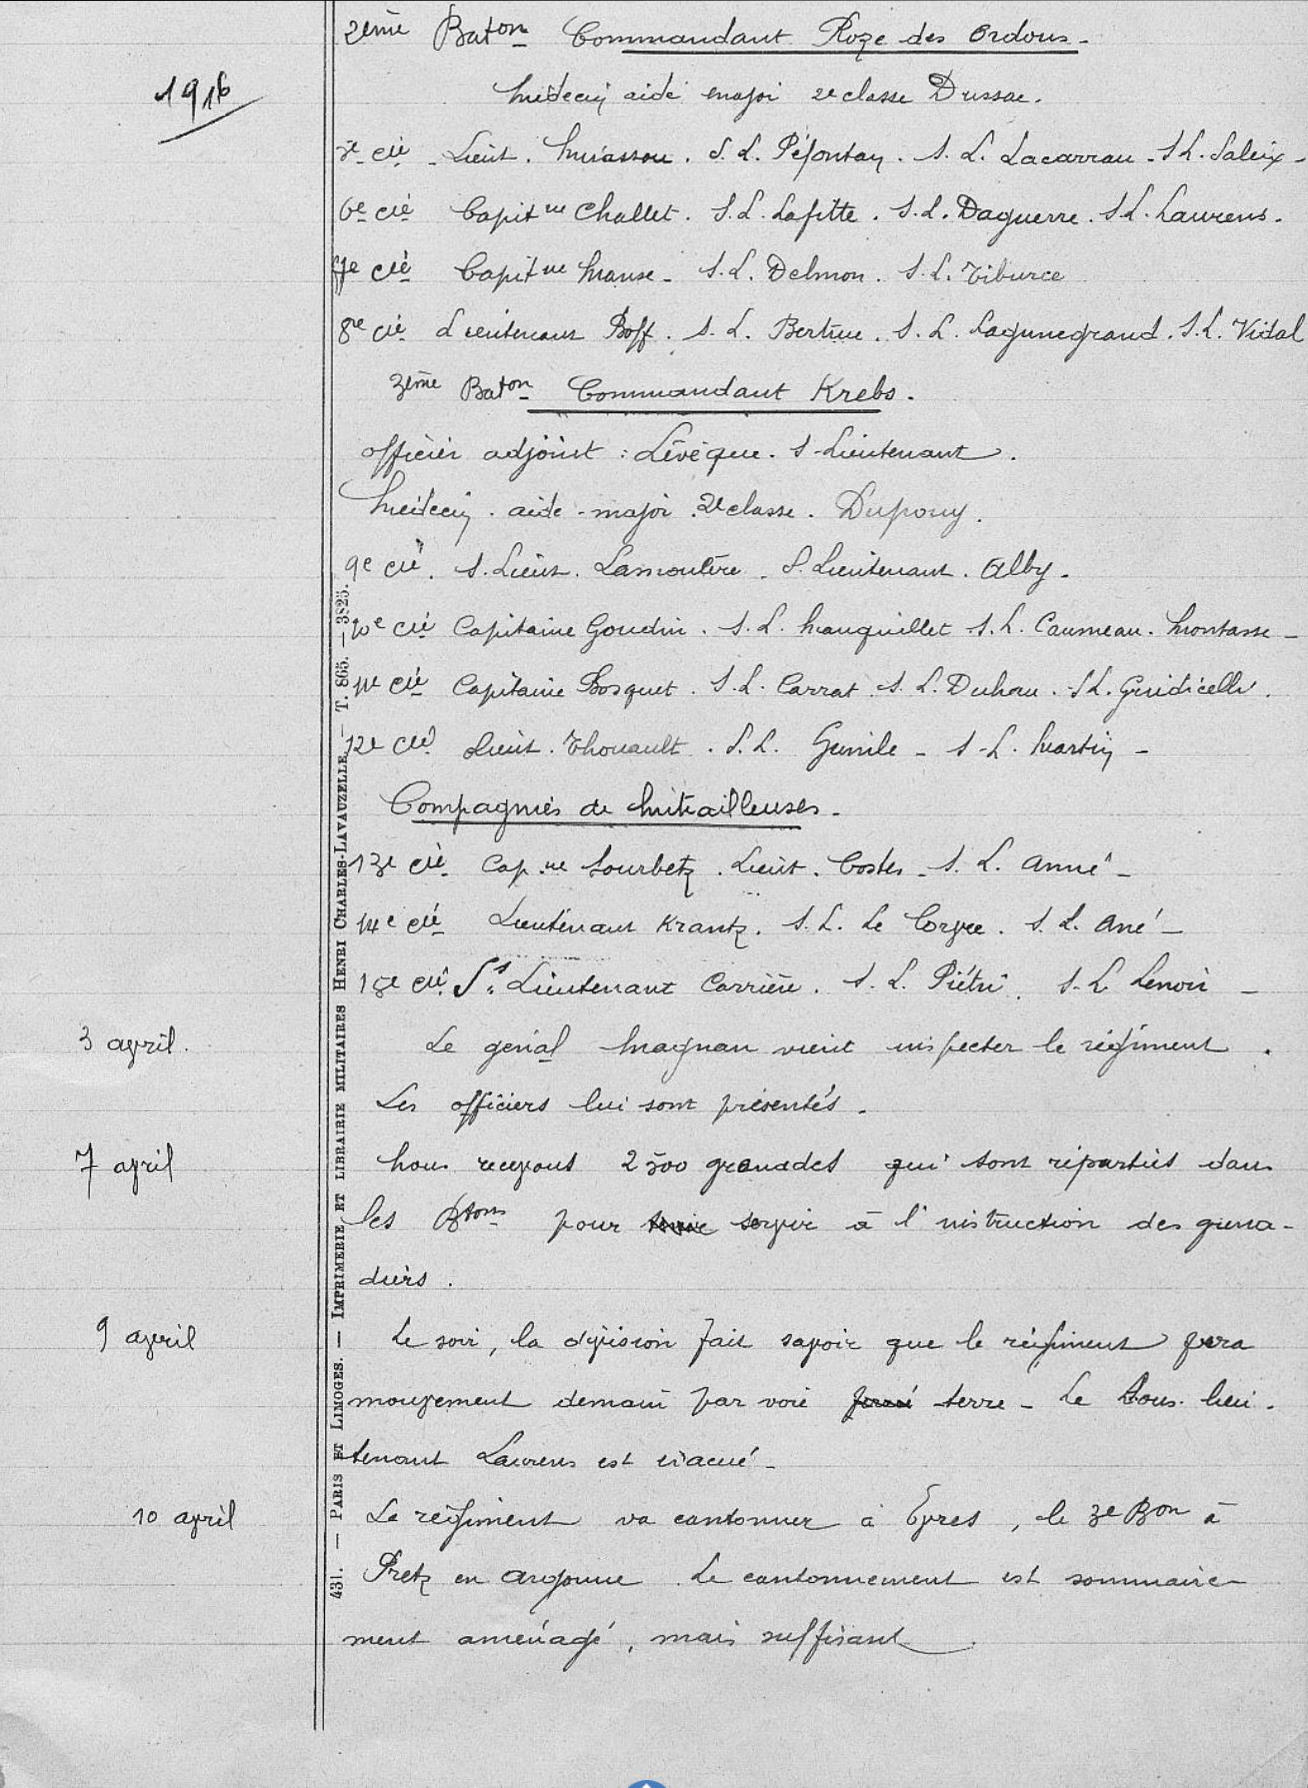 2ème Baton Commandant Roze des Ordons -
1916
Médecin aide major 2e classe Dussac.
5e Cie - Lieut. Miassou. S. L. Péfontan. S. L. Lacarrau - S L. Saleix -
6e Cie Capitne Chollet. S. L. Lafitte. S. L. Daguerre. S L. Laurens.
7e Cie Capitne Manse - S. L. Delmon. S. L. Tiburce
8e Cie Lieutenant Boff. S. L. Bertrue. S. L. Lagunegrand. S. L. Vidal
3ème Baton Commandant Krebs.
officier adjoint : Lévêque. S-Lieutenant.
Médecin. aide-major 2e classe. Dupouy.
9e Cie. S. Lieut. Lamoulère. S. Lieutenant. Alby.
10e Cie Capitaine Goudin. S. L. Mauquillet S. L. Caumeau. Montasse -
11e Cie Capitaine Bosquet. S. L. Carrat. S. L. Duhau. S L. Guidicelli.
12e Cie Lieut. Thouault. S. L. Gumile - S-L. Martin -
Compagnies de Mitrailleuses -
13e Cie Cap.ne Lourbetz. Lieut. Costes - S. L. Anné -
14e Cie Lieutenant Krantz. S. L. Le Corgee. S. L. Ané -
15e Cie Ss Lieutenant Carrière. S. L. Piétri. S. L Lenoir -
3 avril. Le génal Magnan vient inspecter le régiment.
Les officiers lui sont présentés.
7 avril Nous recevons 2500 grenades qui sont réparties dans
les Btons pour servir à l'instruction des grena-
diers.
9 avril Le soir, la division fait savoir que le régiment fera
mouvement demain par voie ferré terre - Le Sous-lieu-
tenant Laurens est évacué -
10 avril Le régiment va cantonner à Evres, le 3e Bon à
Pretz en Argonne. Le cantonnement est sommaire-
ment aménagé, mais suffisant
431. — PARIS ET LIMOGES. — IMPRIMERIE ET LIBRAIRIE MILITAIRES HENRI CHARLES-LAVAUZELLE — T. 865. — 3825.